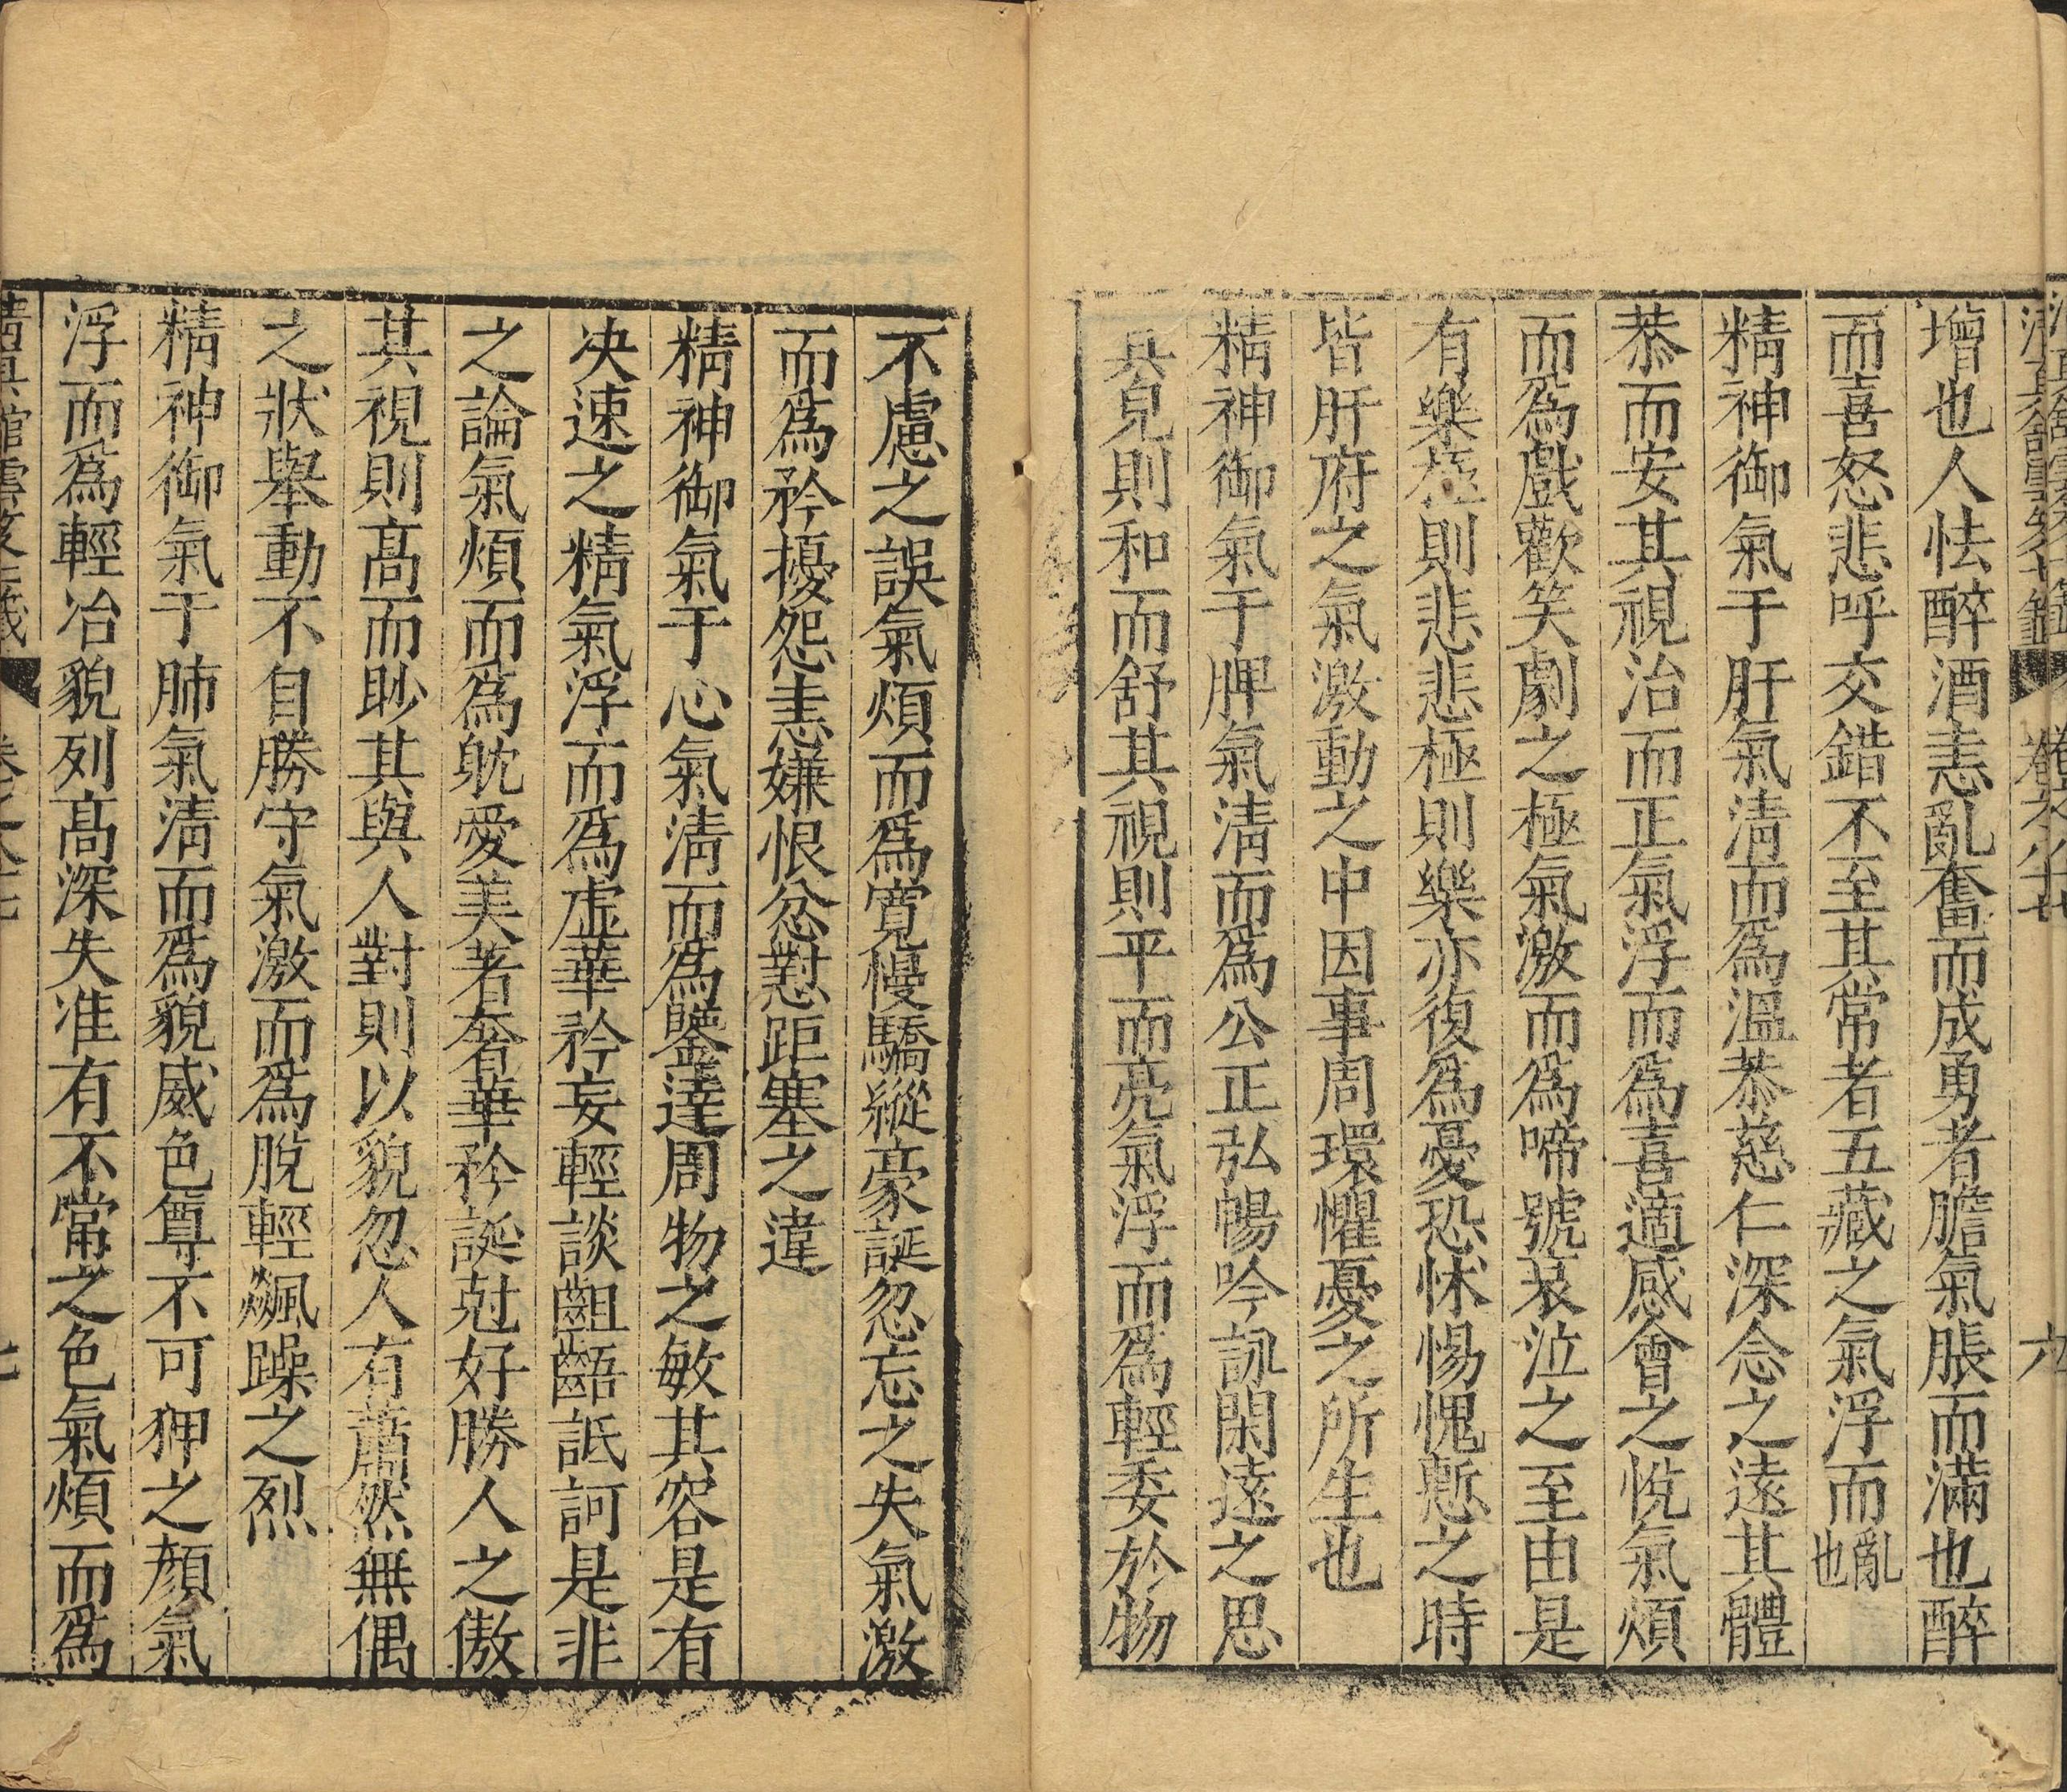 增也人怯醉酒恚亂奮而成勇者膽氣脹而滿也醉
而喜怒悲呼交錯不至其常者五藏之氣浮而亂也
精神御氣于肝氣清而爲溫恭慈仁深念之遠其體
恭而安其視治而正氣浮而爲喜適感會之悅氣煩
而爲戲歡笑劇之極氣激而爲啼號哀泣之至由是
有樂極則悲悲極則樂亦復爲憂恐怵惕愧慙之時
皆肝府之氣激動之中因事周環懼憂之所生也
精神御氣于脾氣清而爲公正弘暢吟詠閑遠之思
具皃則和而舒其視則平而亮氣浮而爲輕委於物
不慮之誤氣煩而爲寬慢驕縱豪誕忽忘之失氣激
而爲矜擾怨恚嫌恨忿懟距塞之違
精神御氣于心氣清而爲鑒達周物之敏其容是有
決速之精氣浮而爲虛華矜妄輕談齟齬詆訶是非
之論氣煩而爲躭愛美著奢華矜誕尅好勝人之傲
其視則高而眇其與人對則以貌忽人有蕭然無偶
之狀舉動不自勝守氣激而爲脫輕飊躁之烈
精神御氣于肺氣清而爲貌威色尊不可狎之顏氣
浮而爲輕冶貌列高深失准有不常之色氣煩而爲